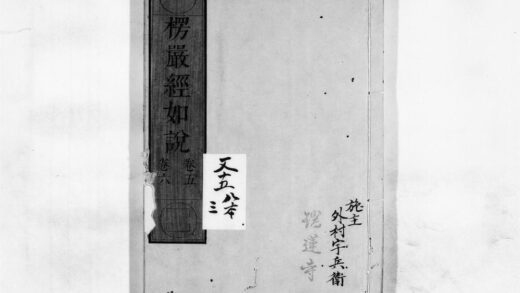 楞嚴經如說
卷五
卷六
又十五
八本
三
施主
外村宇兵衛
蓮寺